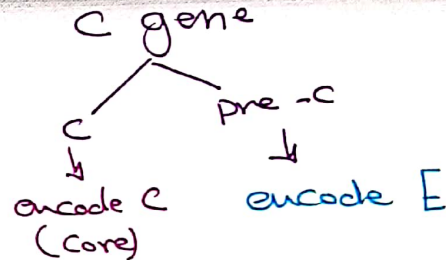 C gene
C
pre-C
encode C
(core)
encode E